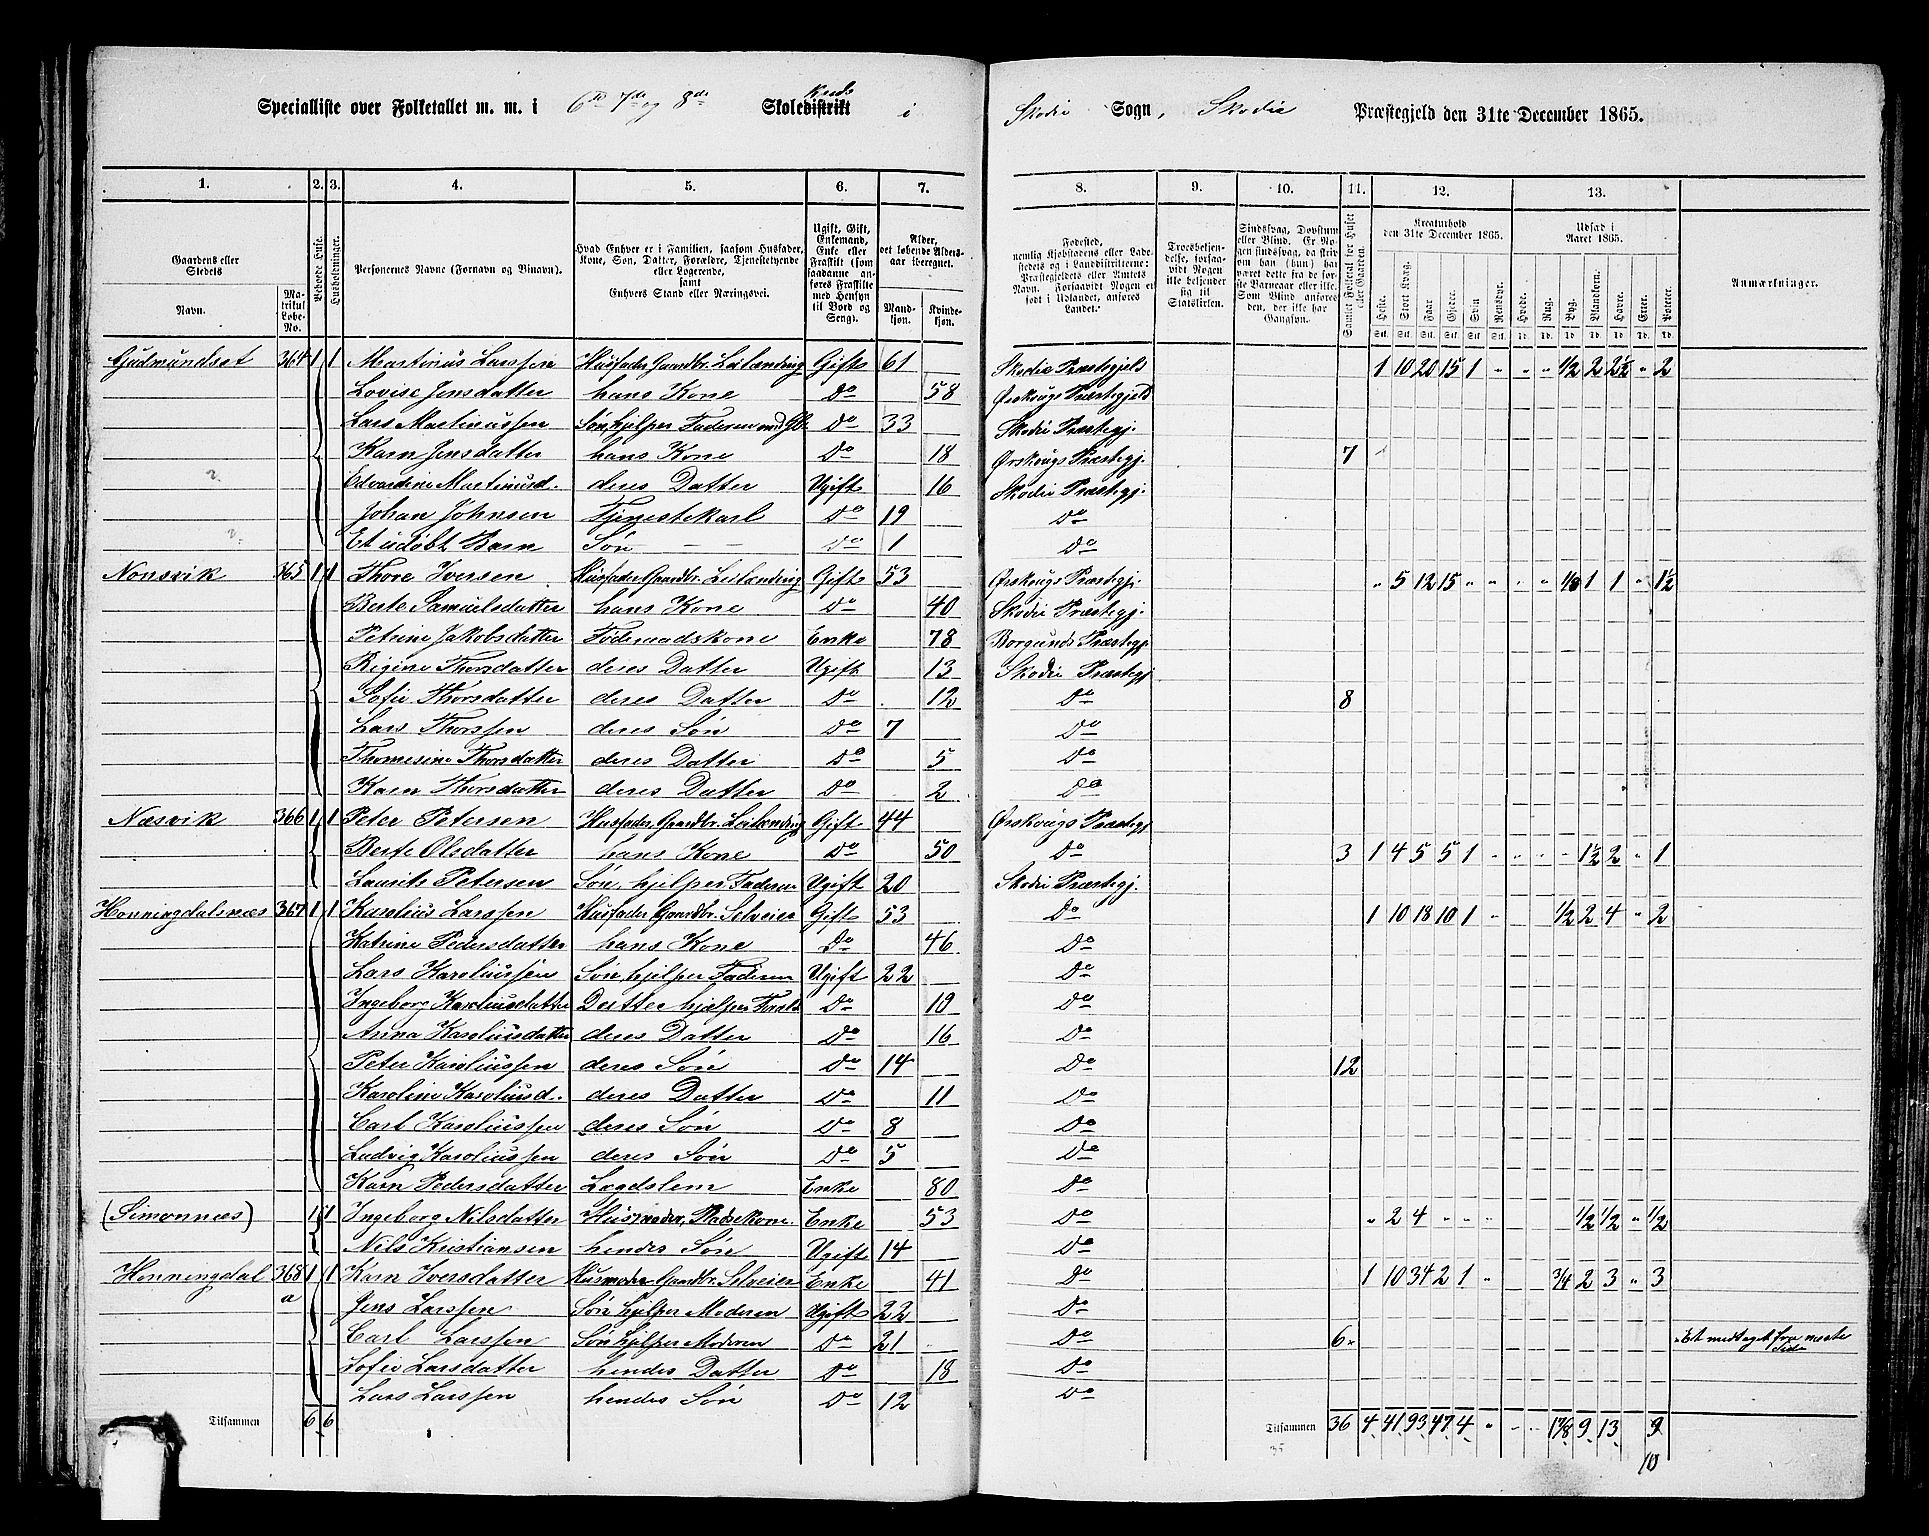 Specialliste over Folketallet m. m. i 6te 7de og 8de Kreds Skoledistrikt i Skodie Sogn, Skodie Præstegjeld den 31te December 1865.
1. 2. 3. 4. 5. 6. 7. 8. 9. 10. 11. 12. 13.
Gaardens eller Stedets
Navn.
Matrikul Løbe-No.
Beboede Huse.
Husholdninger.
Personernes Navne (Fornavn og Binavn).
Hvad Enhver er i Familien, saasom Husfader, Kone, Søn, Datter, Forældre, Tjenestetyende eller Logerende, samt Enhvers Stand eller Næringsvei.
Ugift, Gift, Enkemand, Enke eller Fraskilt
Alder, det løbende Aldersaar iberegnet.
Mandkjøn. Kvindekjøn.
Fødested,
Kreaturhold den 31te December 1865.
Heste. Stort Kvæg. Faar. Gjeder. Svin. Rensdyr.
Udsæd i Aaret 1865.
Hvede. Rug. Byg. Blandkorn. Havre. Erter. Poteter.
Anmærkninger.
Gudmundset 364 1 1 Martinus Larssen Husfader Gaardbr. Leilænding Gift 61 Skodie Præstegjeld 1 10 20 15 1 " " " 1/2 2 2 1/2 " 2
Lovise Jensdatter hans Kone Do 58 Ørskougs Præstegjeld
Lars Martinussen Søn, hjelper Faderen med Gb. Do 33 Skodie Præstegj.
Karn Jensdatter hans Kone Do 18 Ørskougs Præstegj. 7
Edvardine Martinusd. deres Datter Ugift 16 Skodie Præstegj.
Johan Johnsen Tjenestekarl Do 19 Do
Et udøbt Barn Søn Do 1 Do
Nonsvik 365 1 1 Thore Iversen Husfader Gaardbr. Leilænding Gift 53 Ørskougs Præstegj. " 5 12 15 " " " " 1/8 1 1 " 1 1/2
Berte Samuelsdatter hans Kone Do 40 Skodie Præstegj.
Petrine Jakobsdatter Føderaadskone Enke 78 Borgunds Præstegj.
Rigine Thorsdatter deres Datter Ugift 13 Skodie Præstegj
Sofie Thorsdatter deres Datter Do 12 Do 8
Lars Thorssen deres Søn Do 7 Do
Thomesine Thorsdatter deres Datter Do 5 Do
Karn Thorsdatter deres Datter Do 2 Do
Næsvik 366 1 1 Peter Petersen Husfader, Gaardbr. Leilænding Gift 44 Ørskougs Præstegj
Berte Olsdatter hans Kone Do 50 Do 3 1 4 5 5 1 " " " " 1 1/2 2 " 1
Laurits Petersen Søn, hjelper Faderen Ugift 20 Skodie Præstegj.
Honningdalsnæs 367 1 1 Karolius Larssen Husfader Gaardbr. Selveier Gift 53 Do 1 10 18 10 1 " 1/2 2 4 " 2
Katrine Pedersdatter hans Kone Do 46 Do
Lars Karoliussen Søn, hjelper Faderen Ugift 22 Do
Ingeborg Karoliusdatter Datter hjelper Do 19 Do
Anna Karoliusdatter deres Datter Do 16 Do
Peter Karoliussen deres Søn Do 14 Do 12
Karoline Karoliusd. deres Datter Do 11 Do
Carl Karoliussen deres Søn Do 8 Do
Ludvig Karoliussen deres Søn Do 5 Do
Karn Pedersdatter Lægdslem Enke 80 Do
(Simonnæs) 1 1 Ingeborg Nilsdatter Husmoder, Pladsekone. Enke 53 Do " 2 4 " " " 1/2 1/2 " 1/2
Nils Kristiansen hendes Søn Ugift 14 Do
Honningdal 368 a 1 1 Karn Iversdatter Husmoder Gaardbr. Selveier Enke 41 Do 1 10 34 2 1 " 3/4 2 3 " 3
Jens Larssen Søn hjelper Moderen Ugift 22 Do
Carl Larssen Søn hjelper Moderen Do 21 Do 6 Et medtaget fra næste Side
Sofie Larsdatter hendes Datter Do 18 Do
Lars Larssen hendes Søn Do 12 Do
Tilsammen 6 6 Tilsammen 36 4 41 93 47 4 " " " 1 7/8 9 13 9
35 10